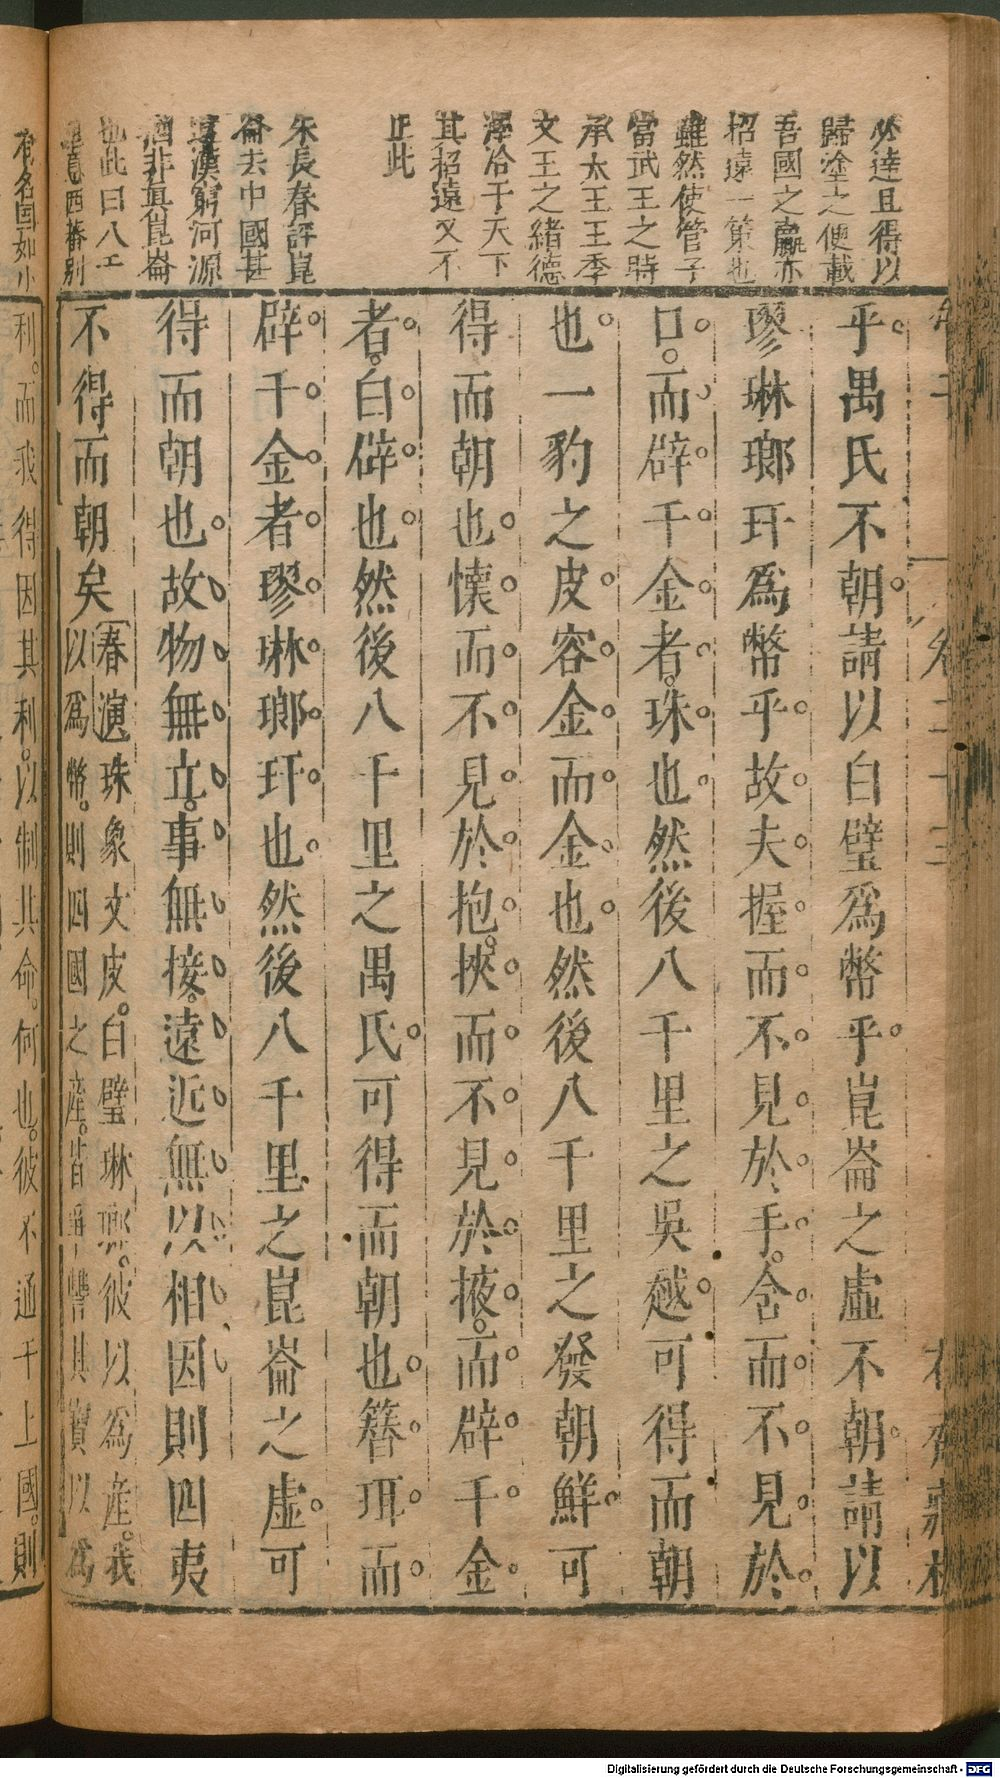 必達且得以
歸塗之便載
吾國之羸亦
招遠一策也
雖然使管子
當武王之時
承太王王季
文王之緒德
澤洽于天下
其招遠又不
止此
朱長春評崑
崙去中國甚
遠漢窮河源
猶非眞崑崙
也此曰八千
乎禺氏不朝請以白璧爲幣乎崑崙之虛不朝請以
璆琳瑯玕爲幣乎故夫握而不見於手含而不見於
口而辟千金者珠也然後八千里之吳越可得而朝
也一豹之皮容金而金也然後八千里之發朝鮮可
得而朝也懷而不見於抱挾而不見於掖而辟千金
者白辟也然後八千里之禺氏可得而朝也簪珥而
辟千金者璆琳瑯玕也然後八千里之崑崙之虛可
得而朝也故物無立事無接遠近無以相因則四夷
不得而朝矣
春演珠象文皮白璧琳瑯彼以爲產我
以爲幣則四國之產皆讐其寶以爲
利而我得因其利以制其命何也彼不通于上國則
Digitalisierung gefördert durch die Deutsche Forschungsgemeinschaft - DFG